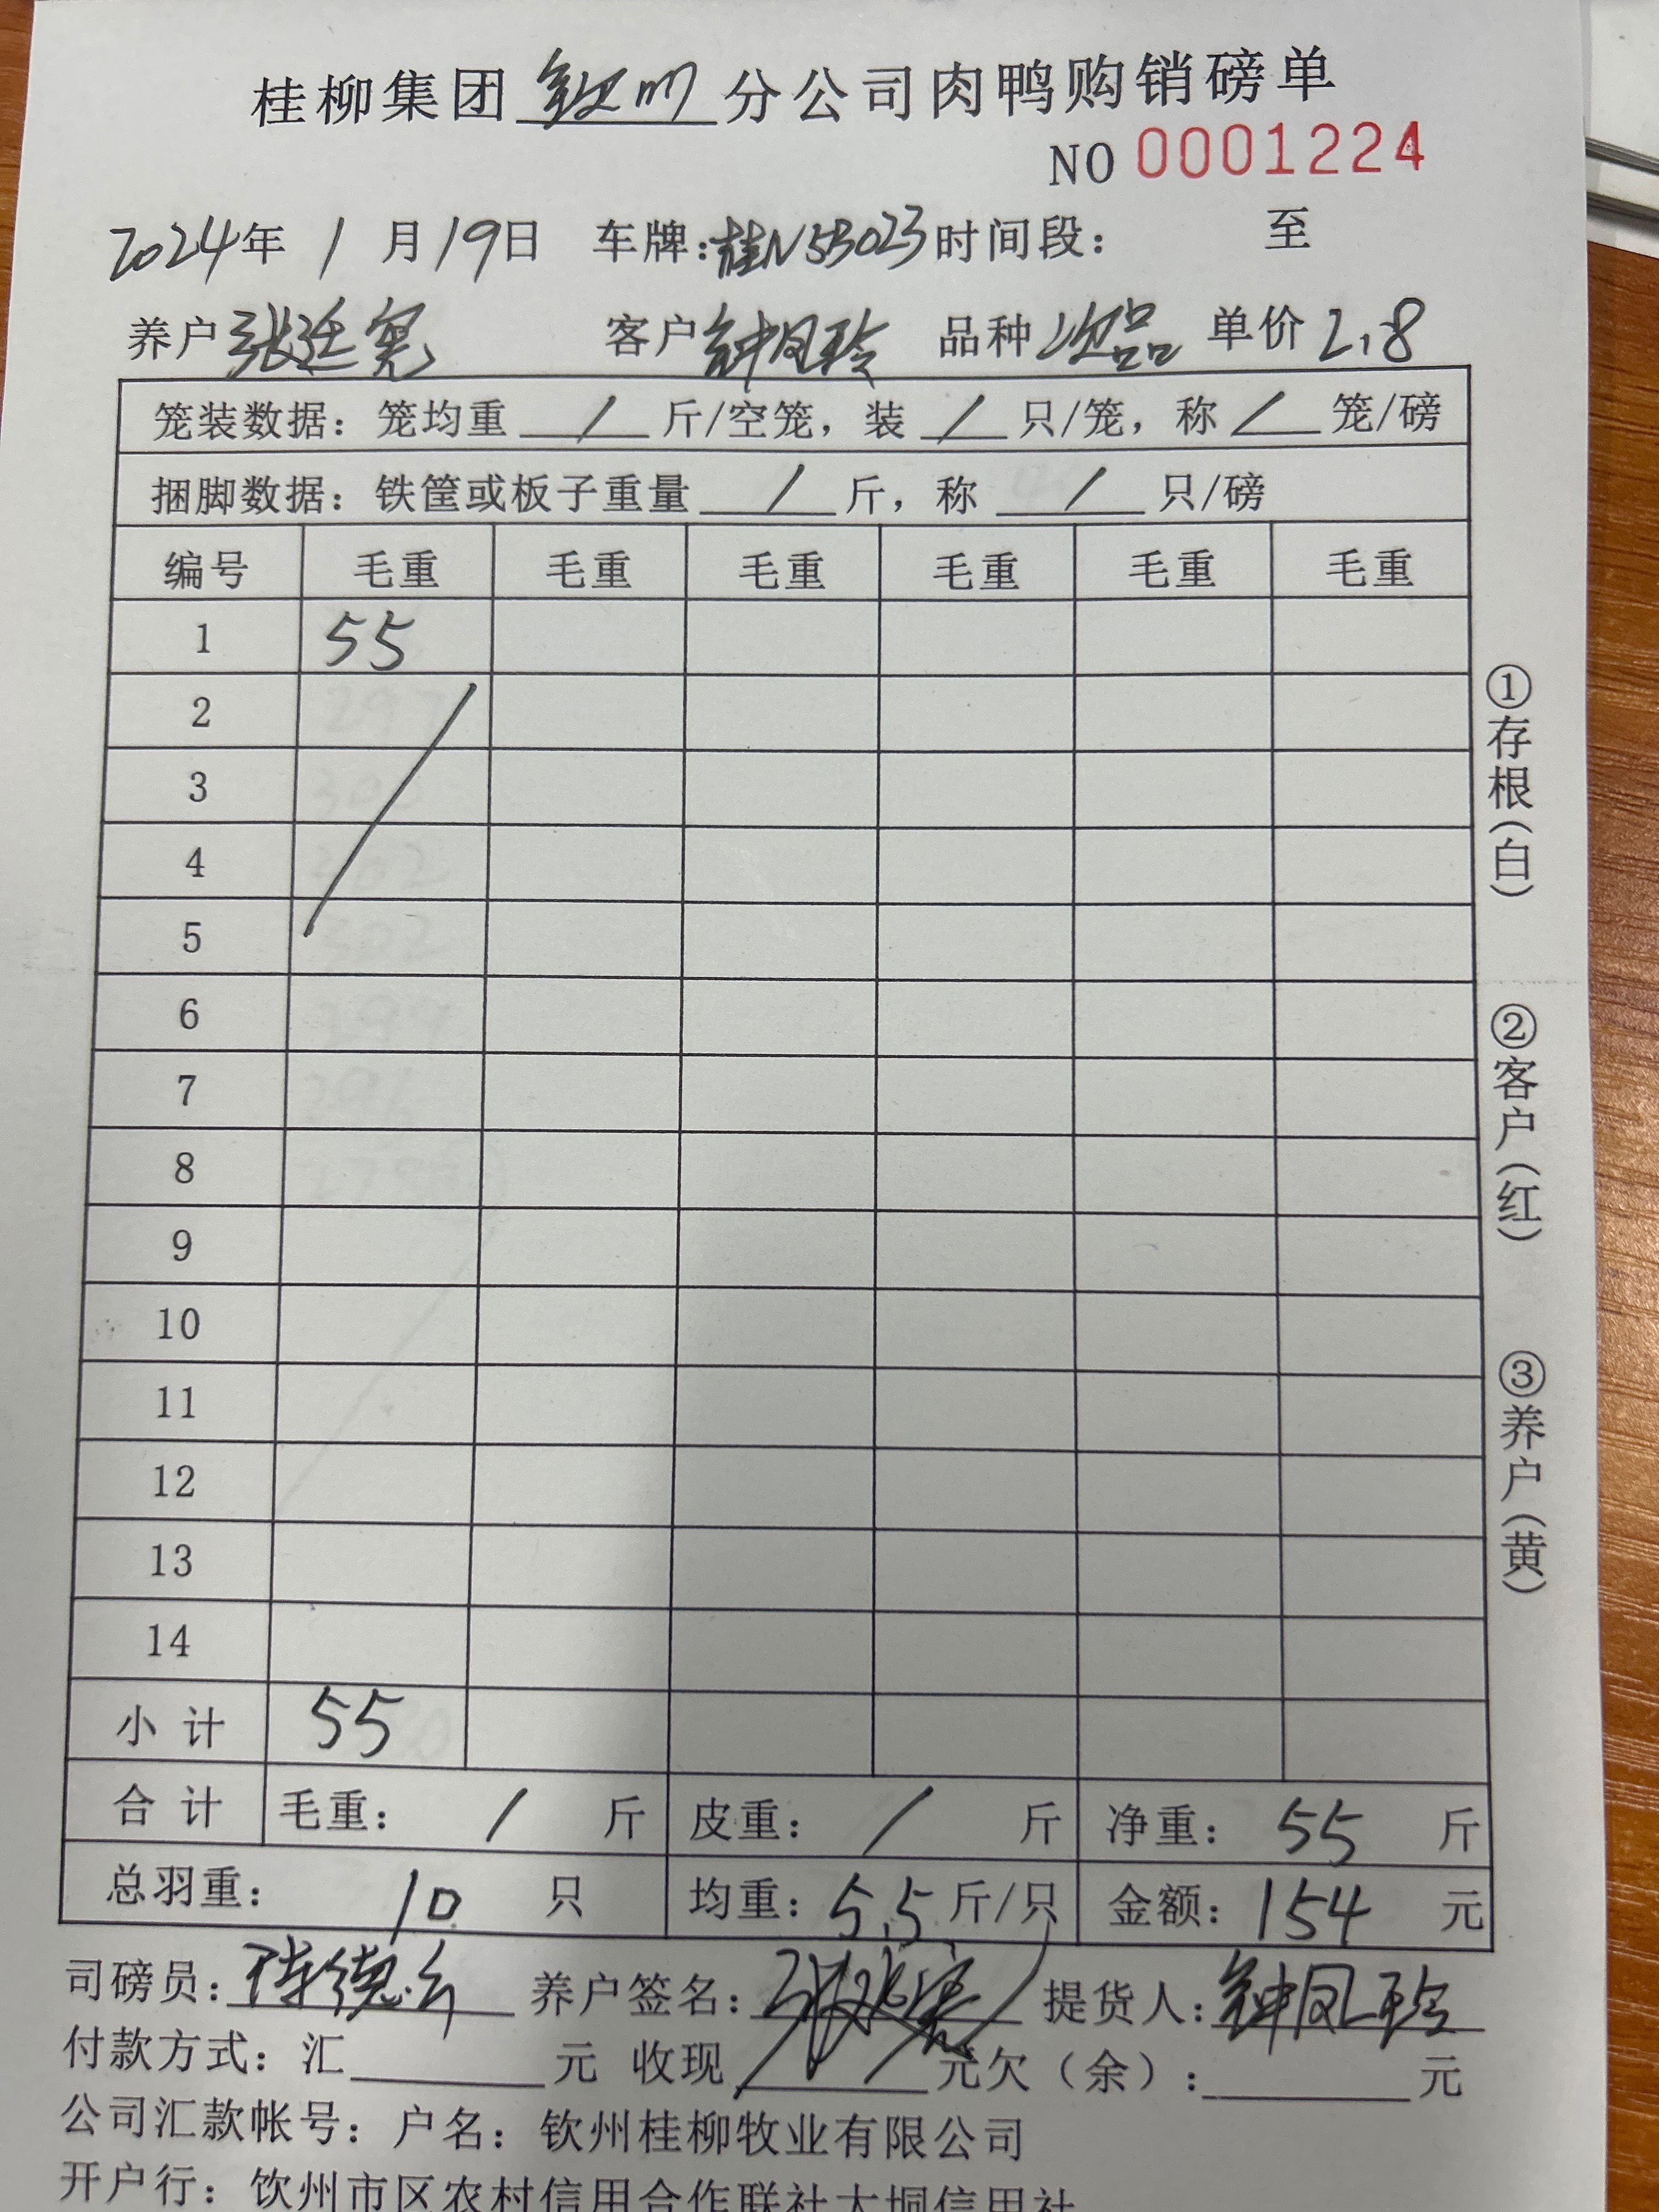 桂柳集团 钦州 分公司肉鸭购销磅单
NO 0001224
2024年 1 月 19日 车牌:桂N53023 时间段: 至
养户 张廷宪 客户 钟凤玲 品种 次品 单价 2.8
笼装数据: 笼均重 / 斤/空笼, 装 / 只/笼, 称 / 笼/磅
捆脚数据: 铁筐或板子重量 / 斤, 称 / 只/磅
编号 毛重 毛重 毛重 毛重 毛重 毛重
1 55
2
3
4
5
6
7
8
9
10
11
12
13
14
小 计 55
合 计 毛重: / 斤 皮重: / 斤 净重: 55 斤
总羽重: 10 只 均重: 5.5 斤/只 金额: 154 元
司磅员: 养户签名: 提货人: 钟凤玲
付款方式: 汇 元 收现 元 欠(余): 元
公司汇款帐号: 户名: 钦州桂柳牧业有限公司
开户行: 钦州市区农村信用合作联社大垌信用社
①存根(白)
②客户(红)
③养户(黄)